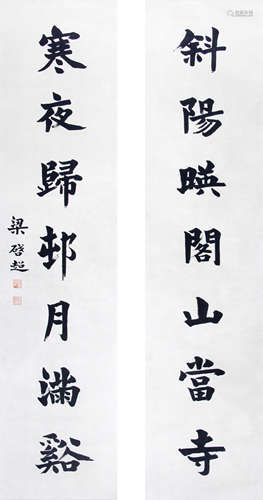 斜陽暎閣山當寺
寒夜歸邨月滿谿
梁啓超